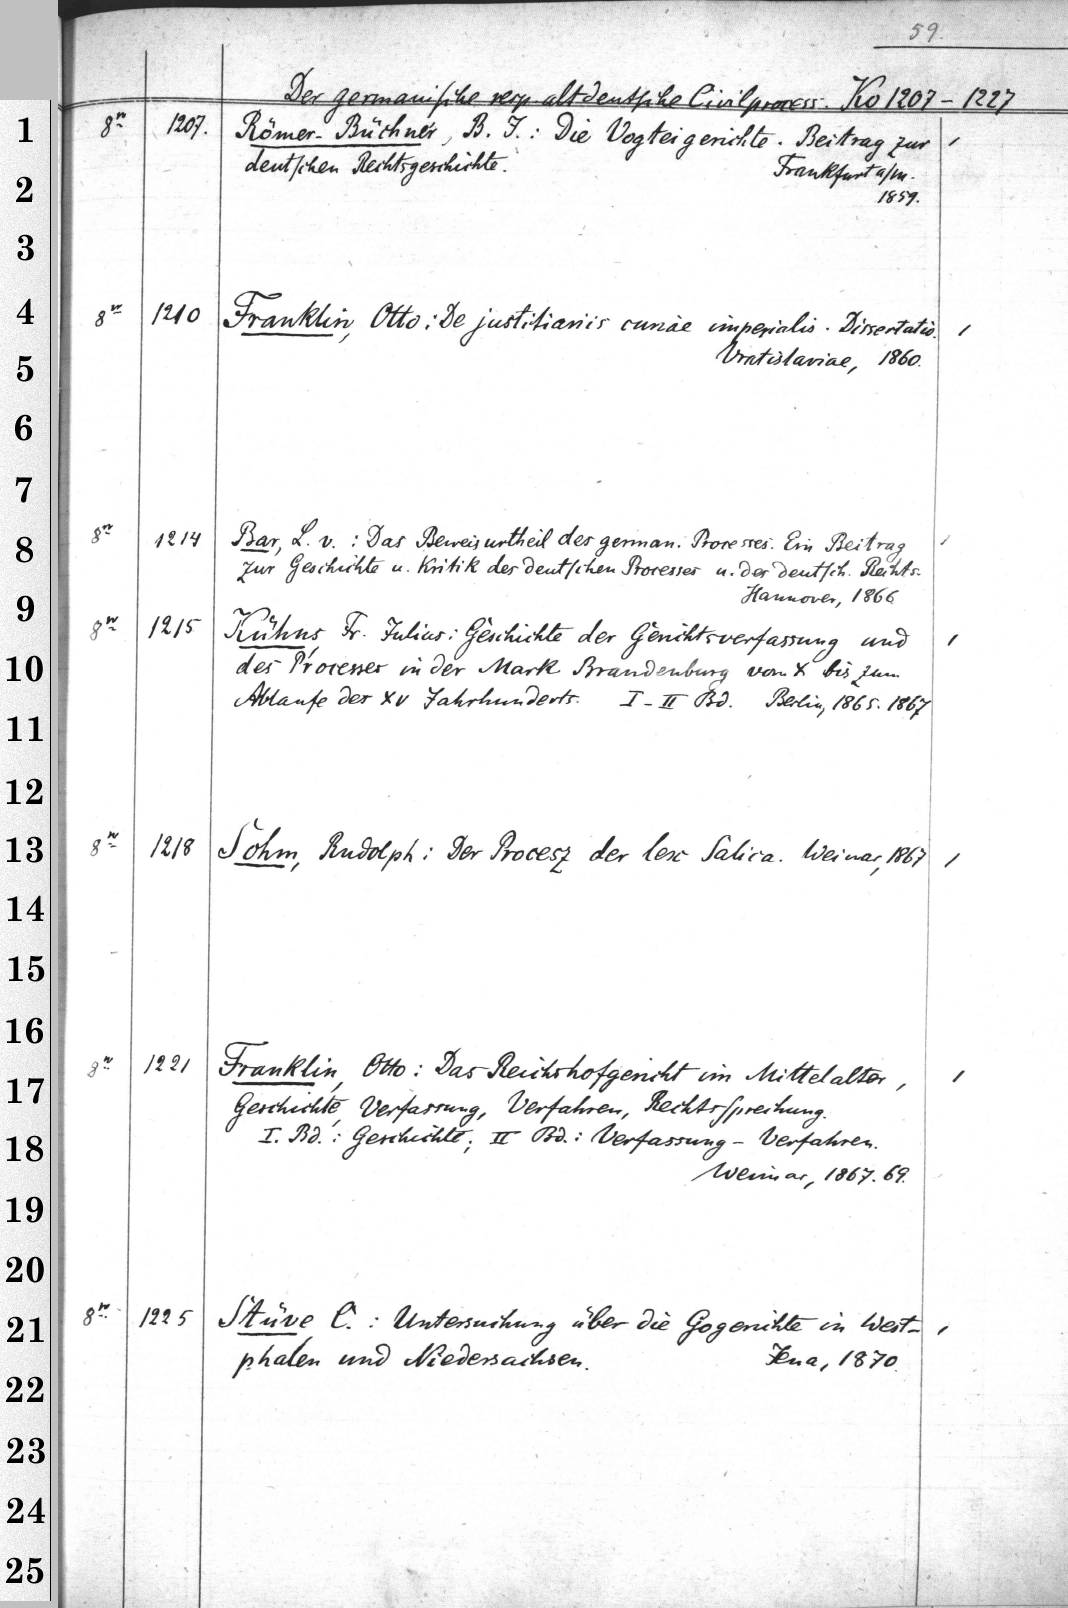 59.
Der germanische resp. altdeutsche Civilprocess. Ko 1207 – 1227
1 8n 1207. Römer-Büchner, B. J.: Die Vogteigerichte. Beitrag zur
deutschen Rechtsgeschichte. Frankfurt a/m.
2 1859.
3
4 8n 1210 Franklin, Otto: De justitiariis curiae imperialis. Dissertatio.
5 Vratislaviae, 1860.
6
7
8 8n 1214 Bar, L. v.: Das Beweisurtheil des german. Processes. Ein Beitrag
zur Geschichte u. Kritik des deutschen Processes u. der deutsch. Rechts.
9 Hannover, 1866
8n 1215 Kühns, Fr. Julius: Geschichte der Gerichtsverfassung und
10 des Processes in der Mark Brandenburg vom X bis zum
Ablaufe der XV Jahrhunderts. I – II Bd. Berlin, 1865. 1867
11
12
13 8n 1218 Sohm, Rudolph: Der Procesz der lex Salica. Weimar, 1867
14
15
16
17 8n 1221 Franklin, Otto: Das Reichshofgericht im Mittelalter,
Geschichte, Verfassung, Verfahren, Rechtssprechung.
18 I. Bd.: Geschichte; II Bd.: Verfassung – Verfahren.
Weimar, 1867. 69.
19
20
21 8n 1225 Stüve C.: Untersuchung über die Gogerichte in West-
phalen und Niedersachsen. Jena, 1870.
22
23
24
25